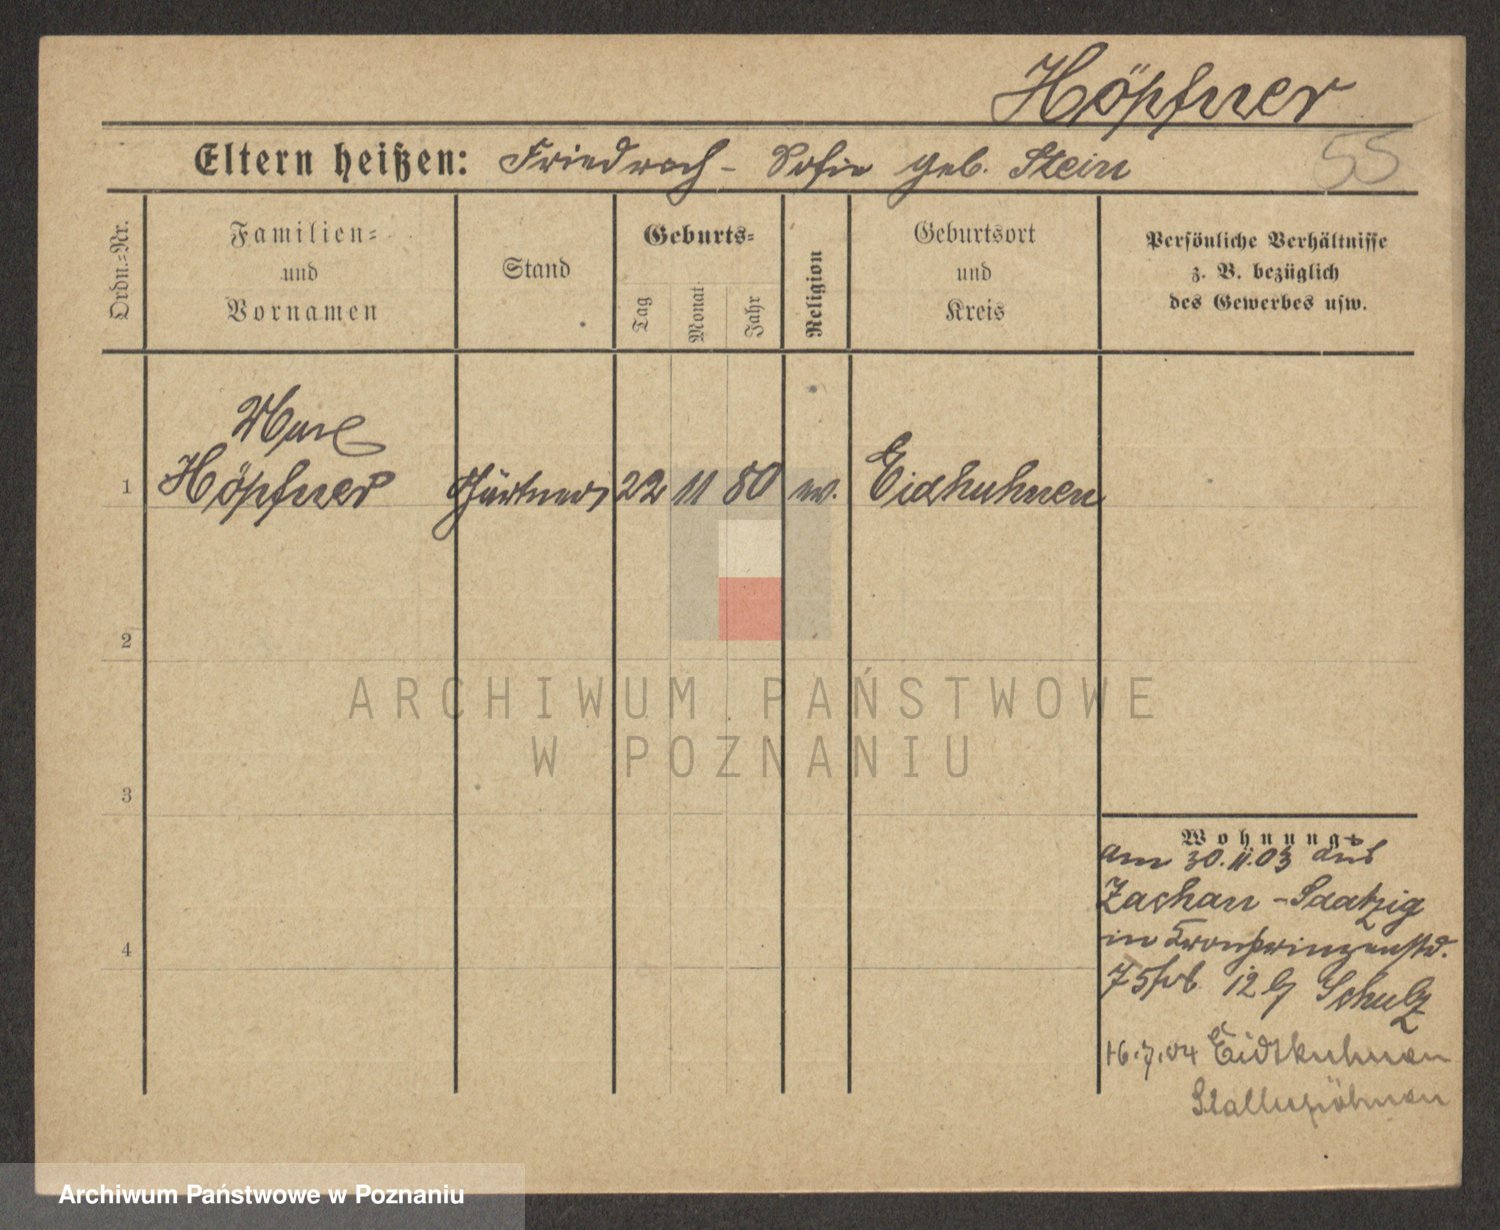 Höpfner
Eltern heißen: Friedrich - Sofie geb. Stein
55
Ordn.=Nr.
Familien=
und
Vornamen
Stand
Geburts=
Tag
Monat
Jahr
Religion
Geburtsort
und
Kreis
Persönliche Verhältnisse
z. B. bezüglich
des Gewerbes usw.
Höpfner
1 Gärtner 22 11 80 ev. Eidkuhnen
2
ARCHIWUM PAŃSTWOWE
W POZNANIU
3
4
Wohnung
am 30.11.03 aus
Zachan - Saatzig
in Kronprinzenstr.
75 12 Schulz
16.7.04 Eidtkuhnen
Stallupöhnen
Archiwum Państwowe w Poznaniu